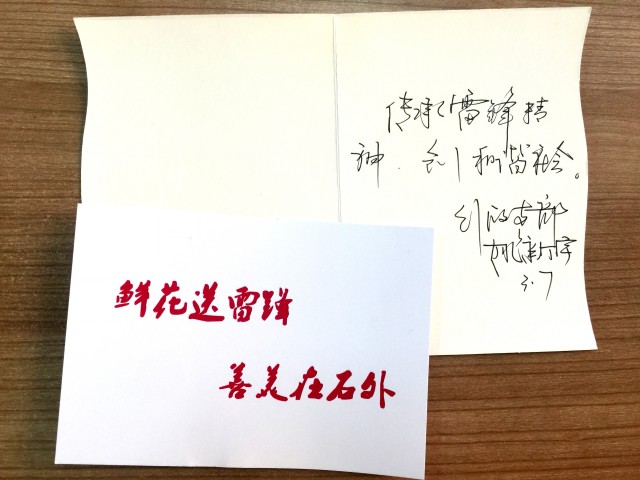 传承雷锋精
神.创和谐社会。
支部
3.7
鲜花送雷锋
善美在石外